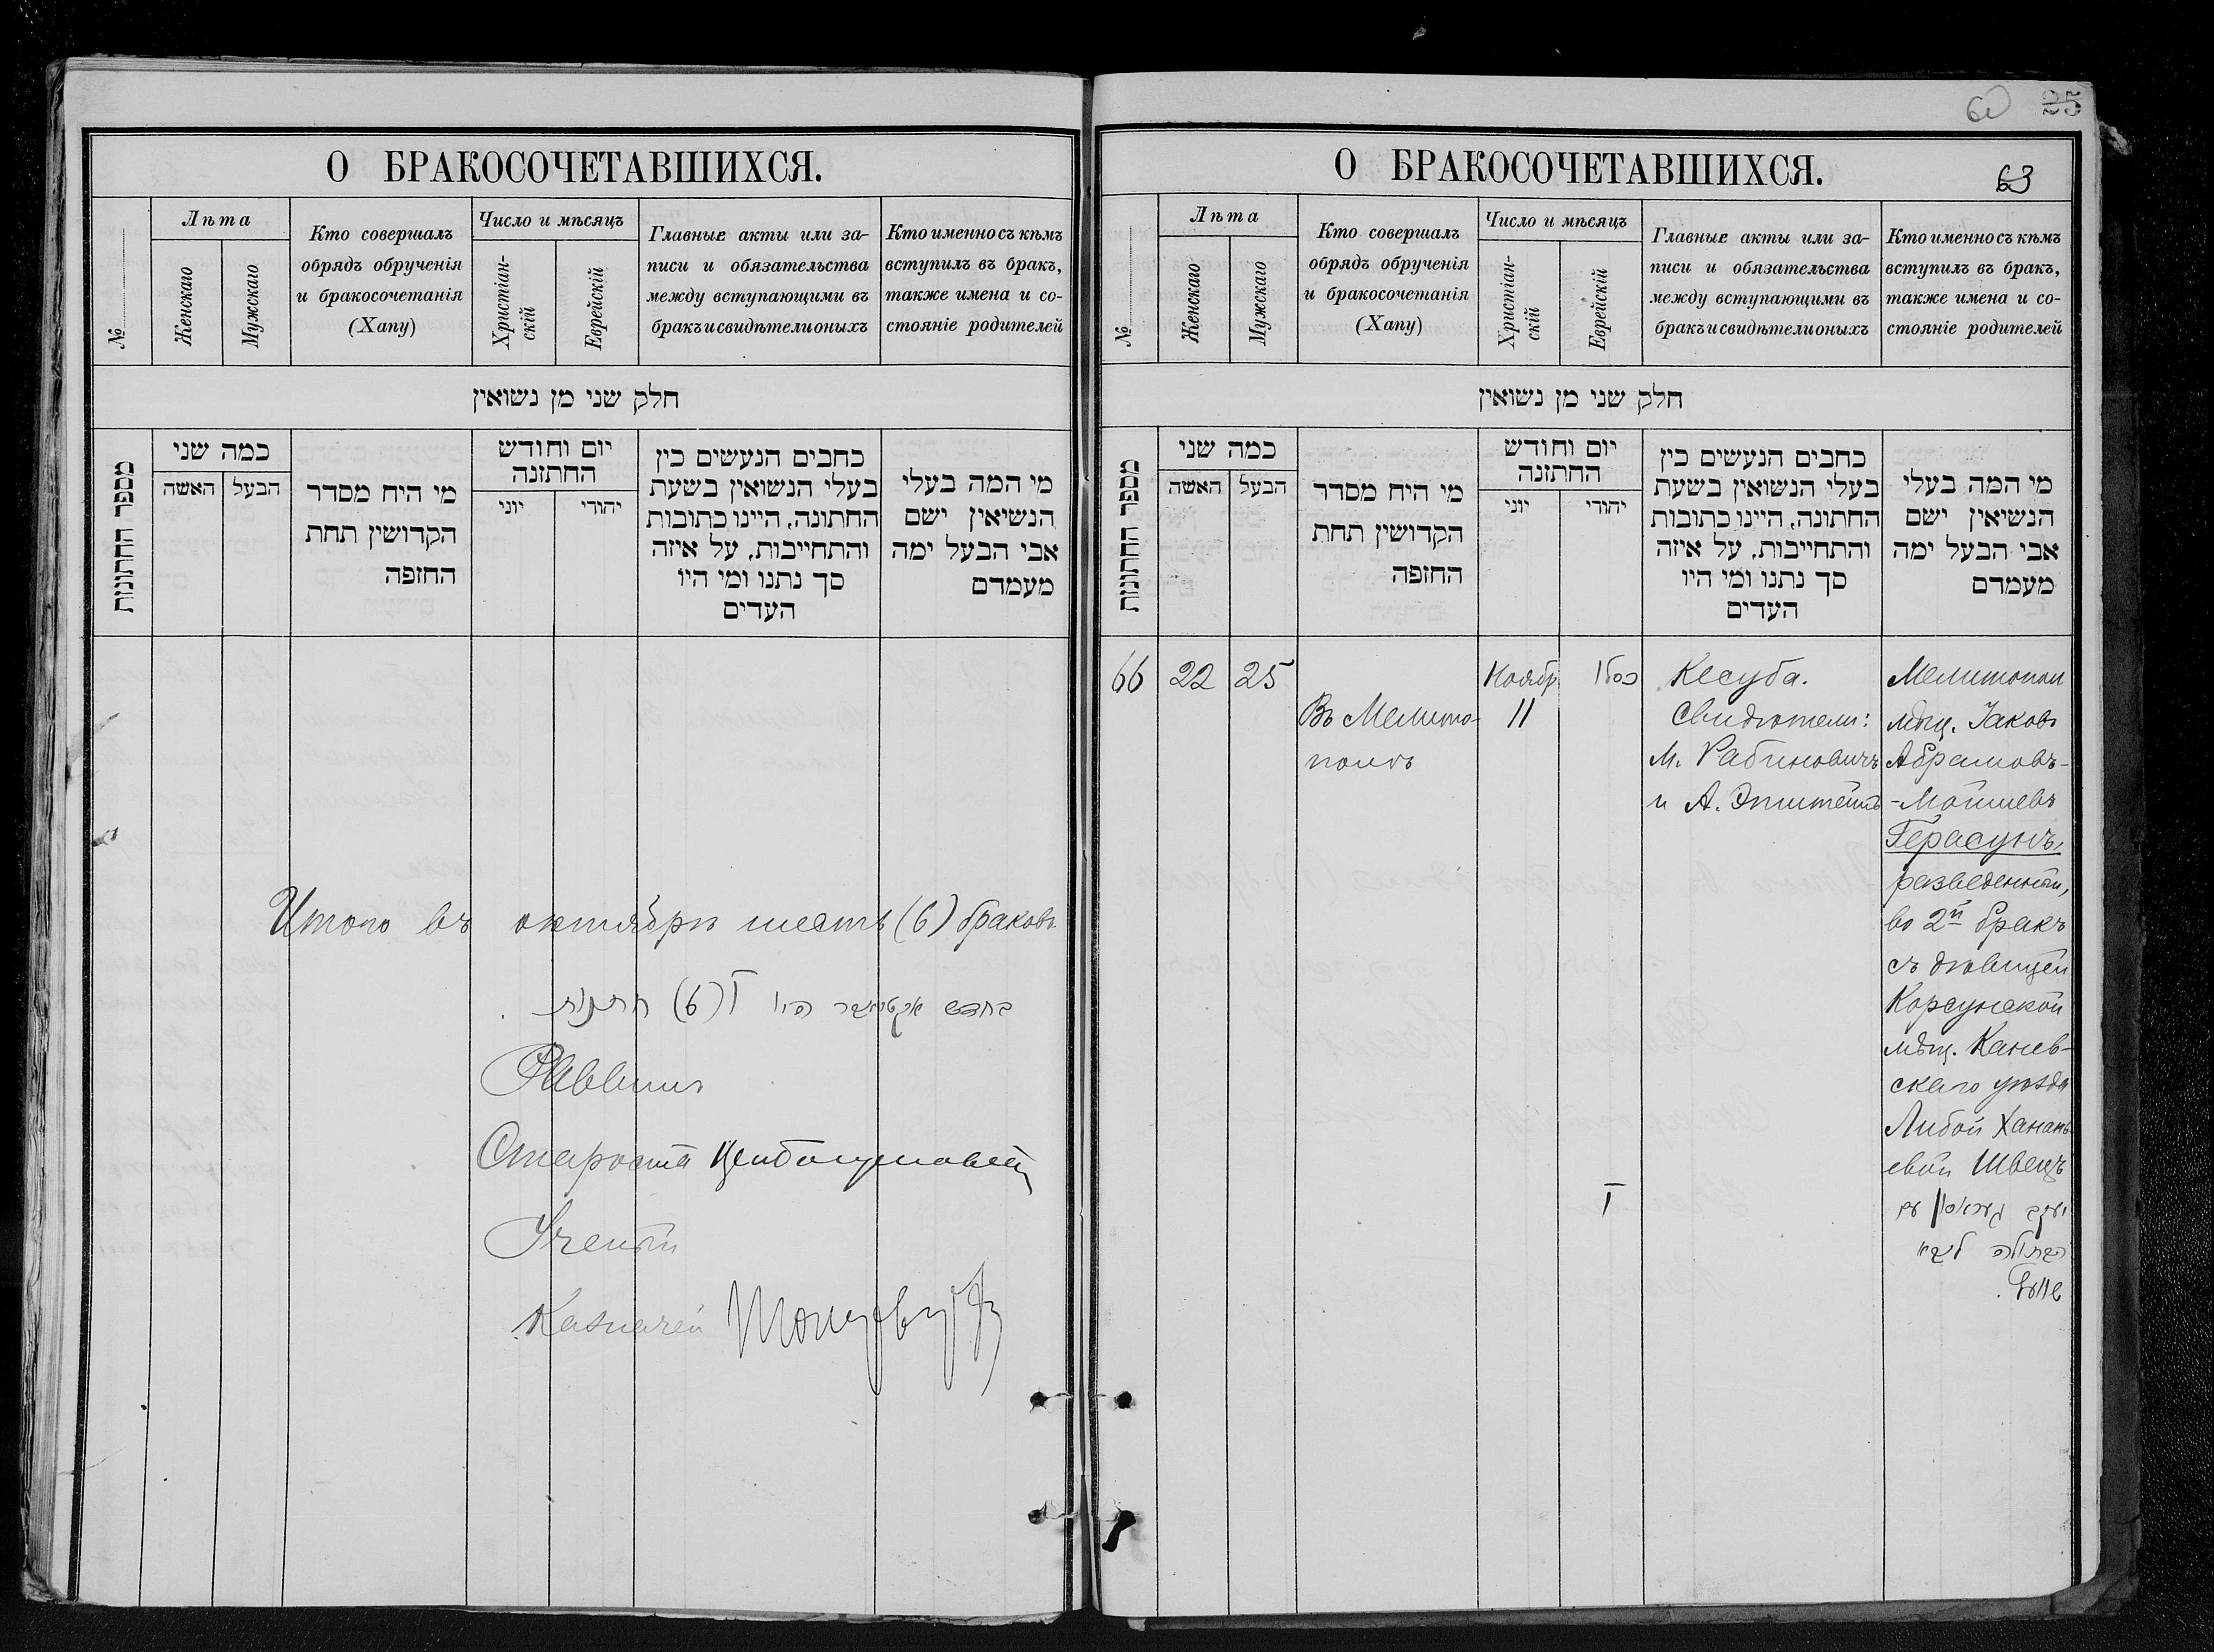 О БРАКОСОЧЕТАВШИХСЯ.
№
Лѣта
Женскаго
Мужскаго
Кто совершалъ
обрядъ обрученія
и бракосочетанія
(Хапу)
Число и мѣсяцъ
Христіан-
скій
Еврейскій
Главные акты или за-
писи и обязательства
между вступающими въ
бракъ и свидѣтели оныхъ
Кто именно съ кѣмъ
вступилъ въ бракъ,
также имена и со-
стояніе родителей
חלק שני מן נשואין
מספר החתונות
כמה שני
האשה
הבעל
מי היח מסדר
הקדושין תחת
החזפה
יום וחודש
החתזנה
יוני
יהודי
כחבים הנעשים כין
בעלי הנשואין בשעת
החתונה, היינו כתובות
והתחייבות, על איזה
סך נתנו ומי היו
העדים
מי המה בעלי
הנשיאין ישם
אבי הבעל ימה
מעמדם
Итого въ октябрѣ шесть (6) браковъ
בחדש אקטיאבר היו ו (6) חתונות
Раввинъ
Староста
Ученый
Казначей
60 25
О БРАКОСОЧЕТАВШИХСЯ.
63
№
Лѣта
Женскаго
Мужскаго
Кто совершалъ
обрядъ обрученія
и бракосочетанія
(Хапу)
Число и мѣсяцъ
Христіан-
скій
Еврейскій
Главные акты или за-
писи и обязательства
между вступающими въ
бракъ и свидѣтели оныхъ
Кто именно съ кѣмъ
вступилъ въ бракъ,
также имена и со-
стояніе родителей
חלק שני מן נשואין
מספר החתונות
כמה שני
האשה
הבעל
מי היח מסדר
הקדושין תחת
החזפה
יום וחודש
החתזנה
יוני
יהודי
כחבים הנעשים כין
בעלי הנשואין בשעת
החתונה, היינו כתובות
והתחייבות, על איזה
סך נתנו ומי היו
העדים
מי המה בעלי
הנשיאין ישם
אבי הבעל ימה
מעמדם
66
22
25
Въ Мелито-
полѣ
Ноябр
11
כסלו
ו
Кесуба.
Свидѣтели:
М. Рабиновичъ
и А. Эпштейнъ
Мелитопол
мѣщ. Іаковъ
Абрамовъ-
-Мошиевъ
Герасунъ,
разведенный,
во 2й бракъ
съ дѣвицей
Корсунской
мѣщ. Канев-
скаго уѣзда
Либой Ханань-
евой Швецъ
יעקב גאראסון עם
הבתולה ליבא
שוועץ.